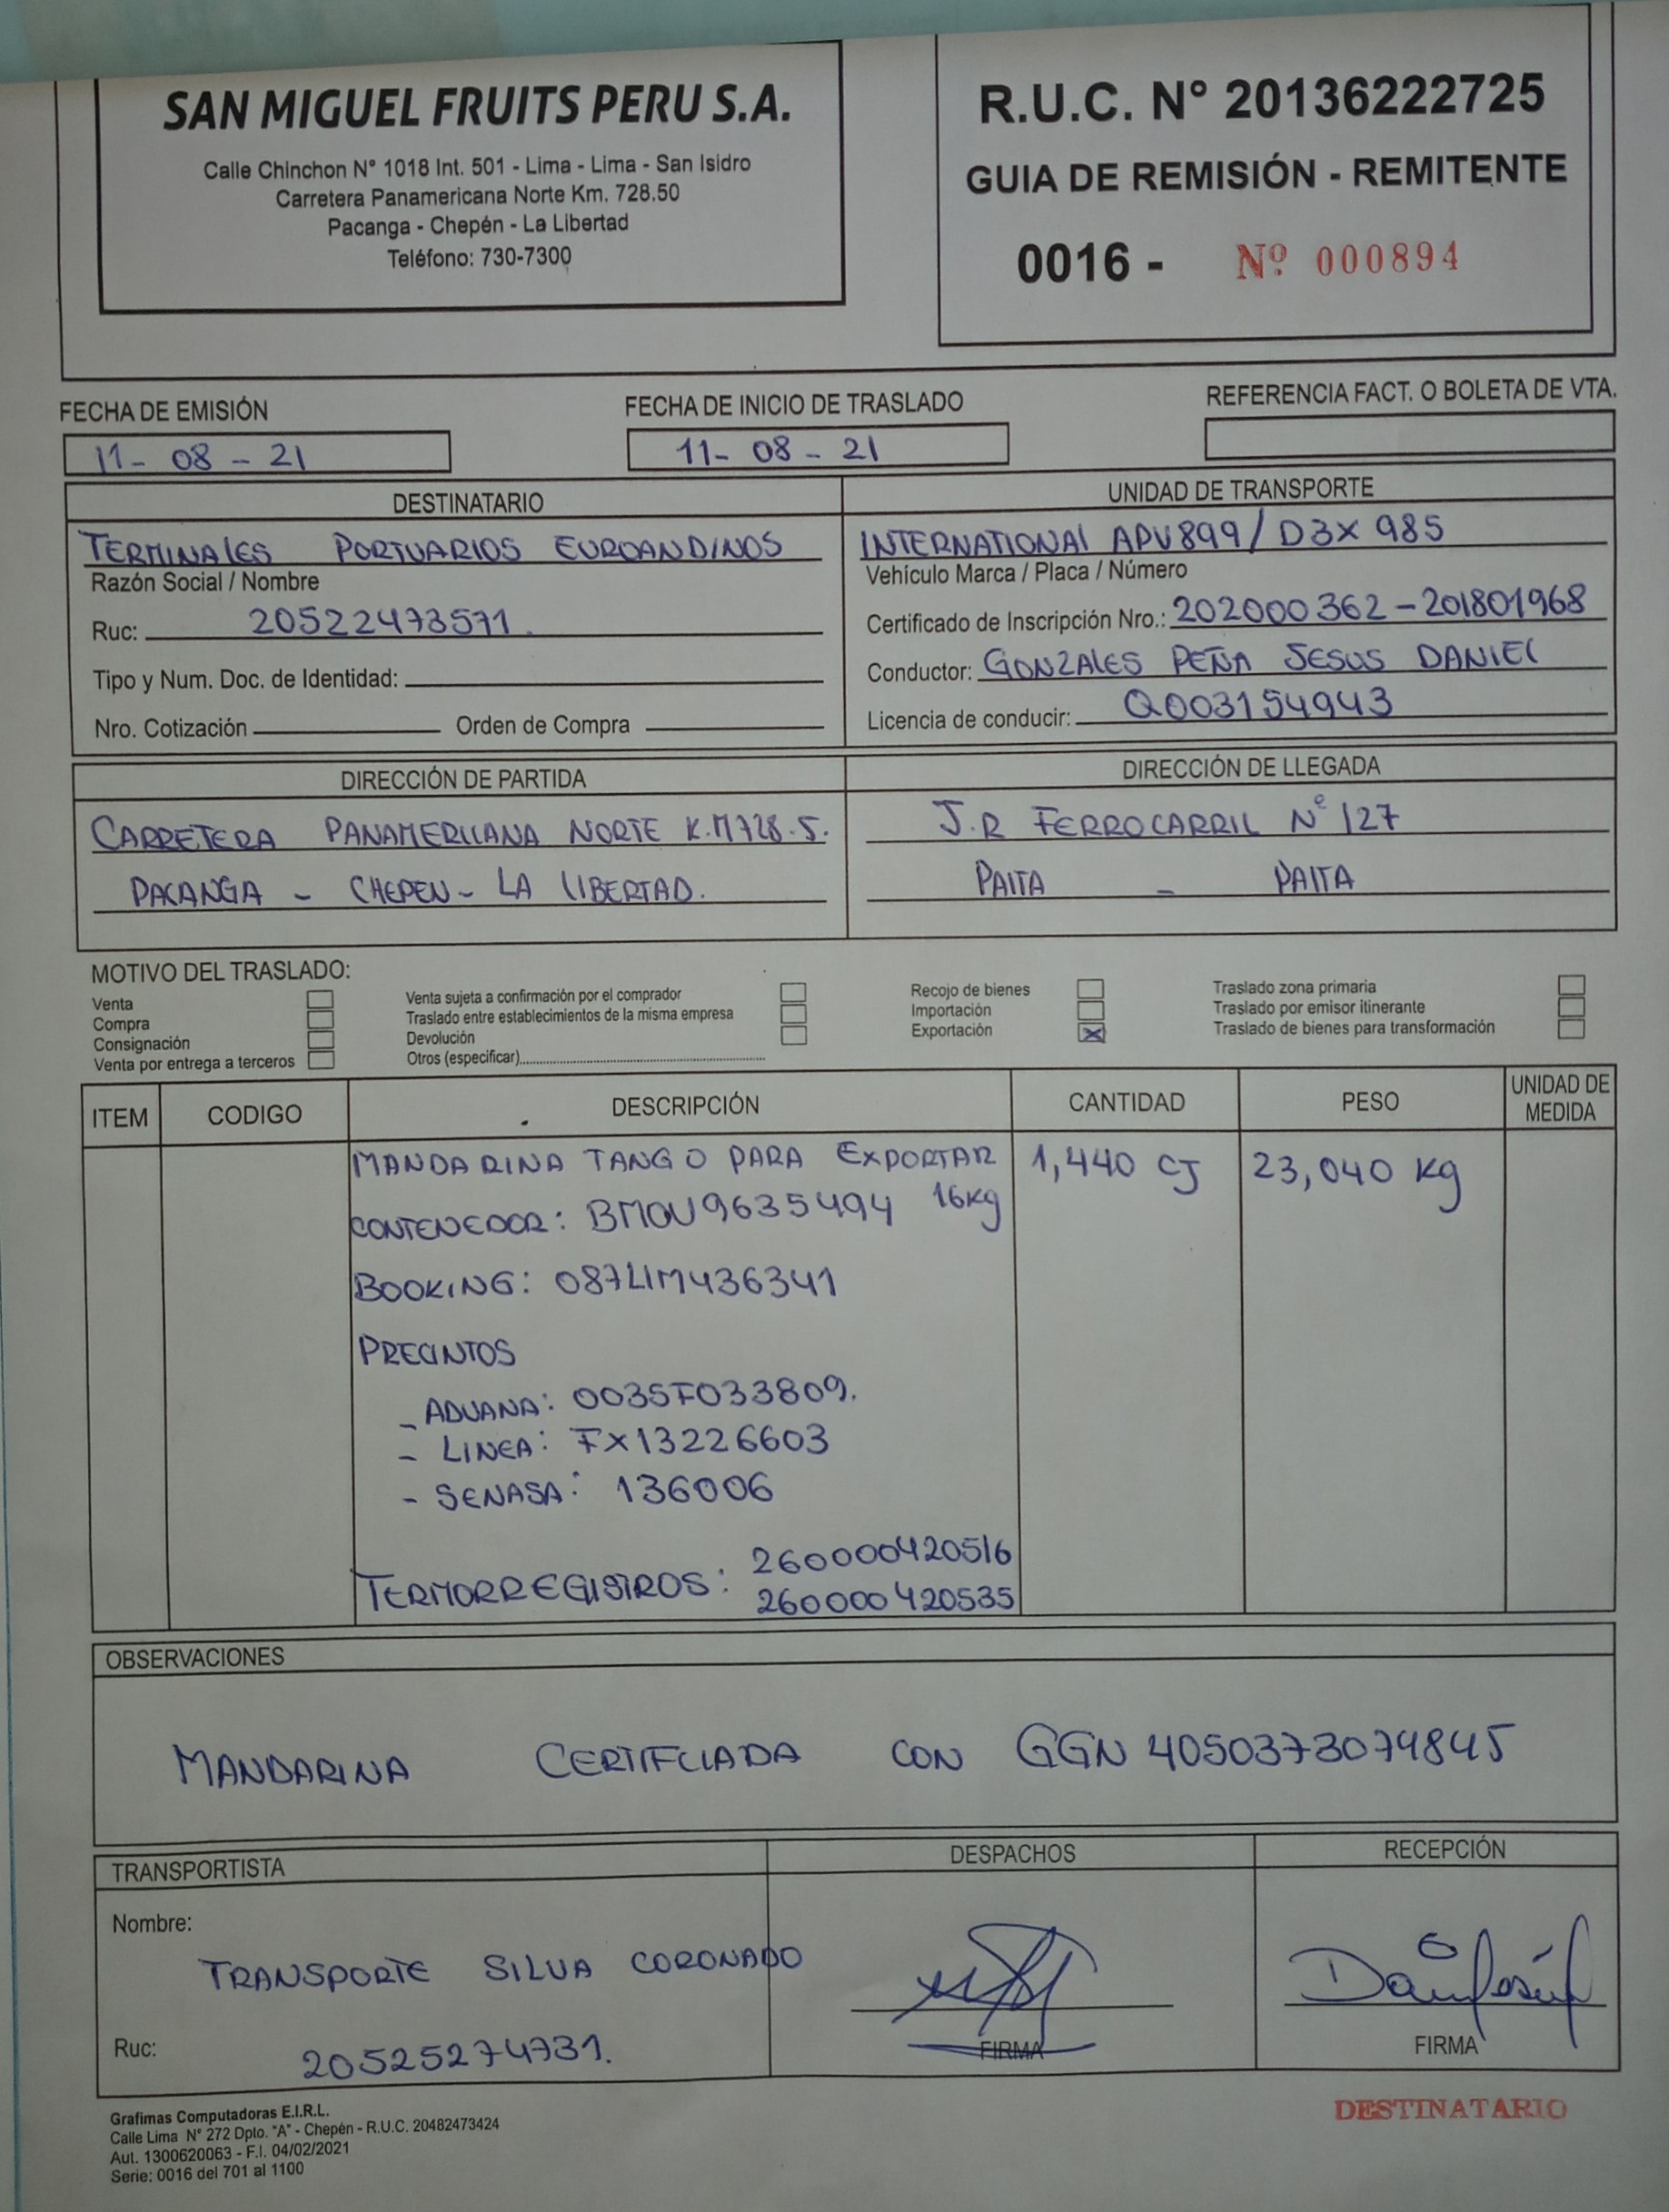 SAN MIGUEL FRUITS PERU S.A.
Calle Chinchon N° 1018 Int. 501 - Lima - Lima - San Isidro
Carretera Panamericana Norte Km. 728.50
Pacanga - Chepén - La Libertad
Teléfono: 730-7300
R.U.C. N° 20136222725
GUIA DE REMISIÓN - REMITENTE
0016 - Nº 000894
FECHA DE EMISIÓN
11- 08 - 21
FECHA DE INICIO DE TRASLADO
11- 08 - 21
REFERENCIA FACT. O BOLETA DE VTA.
DESTINATARIO
TERMINALES PORTUARIOS EUROANDINOS
Razón Social / Nombre
Ruc: 20522473571.
Tipo y Num. Doc. de Identidad:
Nro. Cotización Orden de Compra
UNIDAD DE TRANSPORTE
INTERNATIONAL APV899/D3X 985
Vehículo Marca / Placa / Número
Certificado de Inscripción Nro.: 202000362-201801968
Conductor: GONZALES PEÑA JESUS DANIEL
Licencia de conducir: Q003154943
DIRECCIÓN DE PARTIDA
CARRETERA PANAMERICANA NORTE K.M728.5.
PACANGA - CHEPEN - LA LIBERTAD.
DIRECCIÓN DE LLEGADA
J.R FERROCARRIL N° 127
PAITA - PAITA
MOTIVO DEL TRASLADO:
Venta
Compra
Consignación
Venta por entrega a terceros
Venta sujeta a confirmación por el comprador
Traslado entre establecimientos de la misma empresa
Devolución
Otros (especificar)
Recojo de bienes
Importación
Exportación X
Traslado zona primaria
Traslado por emisor itinerante
Traslado de bienes para transformación
ITEM CODIGO DESCRIPCIÓN CANTIDAD PESO UNIDAD DE MEDIDA
MANDARINA TANGO PARA EXPORTAR 1,440 CJ 23,040 Kg
CONTENEDOR: BMOU9635494 16Kg
BOOKING: 087LIM436341
PRECINTOS
- ADUANA: 0035F033809.
- LINEA: FX13226603
- SENASA: 136006
TERMORREGISTROS: 260000420516
260000420535
OBSERVACIONES
MANDARINA CERTIFCIADA CON GGN 4050373074845
TRANSPORTISTA
Nombre:
TRANSPORTE SILVA CORONADO
Ruc: 20525274731.
DESPACHOS
FIRMA
RECEPCIÓN
FIRMA
Grafimas Computadoras E.I.R.L.
Calle Lima N° 272 Dpto. "A" - Chepén - R.U.C. 20482473424
Aut. 1300620063 - F.I. 04/02/2021
Serie: 0016 del 701 al 1100
DESTINATARIO